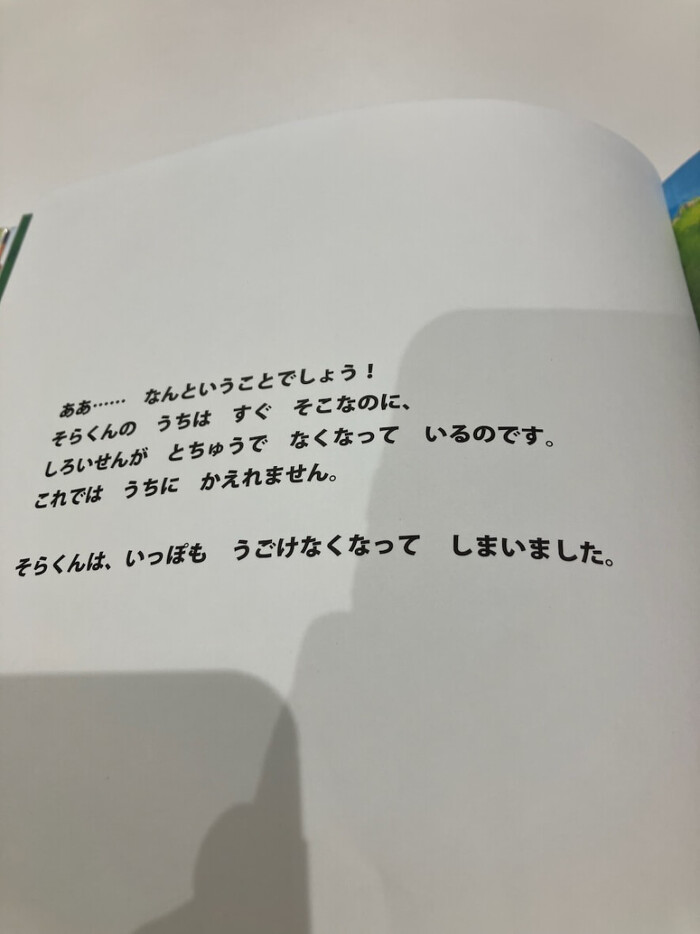 ああ…… なんということでしょう！
そらくんの うちは すぐ そこなのに、
しろいせんが とちゅうで なくなって いるのです。
これでは うちに かえれません。
そらくんは、いっぽも うごけなくなって しまいました。